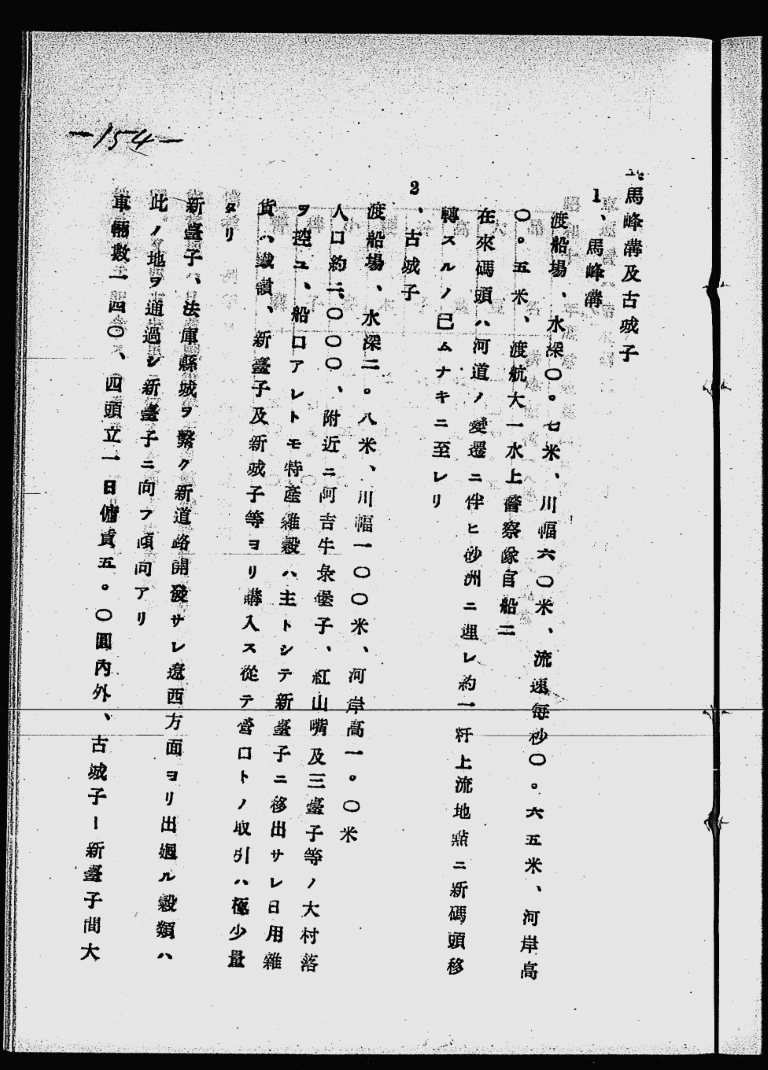 -154-
馬峰溝及古城子
1、馬峰溝
渡船場、水深〇。七米、川幅六〇米、流速每秒〇。六五米、河岸高
〇。五米、渡航大一水上警察隊官船二
在來碼頭ハ河道ノ變遷ニ伴ヒ砂洲ニ埋レ約一粁上流地點ニ新碼頭移
轉スルノ已ムナキニ至レリ
2、古城子
渡船場、水深二。八米、川幅一〇〇米、河岸高一。〇米
人口約二、〇〇〇、附近ニ阿吉牛彔堡子、紅山嘴及三臺子等ノ大村落
ヲ控ユ、船口アレトモ特產雜穀ハ主トシテ新臺子ニ移出サレ日用雜
貨ハ鐵嶺、新臺子及新城子等ヨリ購入ス從テ營口トノ取引ハ極少量
タリ
新臺子、法庫縣城ヲ繫ク新道路開發サレ遼西方面ヨリ出廻ル穀類ハ
此ノ地ヲ通過シ新臺子ニ向フ傾向アリ
車輛數一四〇、四頭立一日傭賃五。〇圓內外、古城子ー新臺子間大